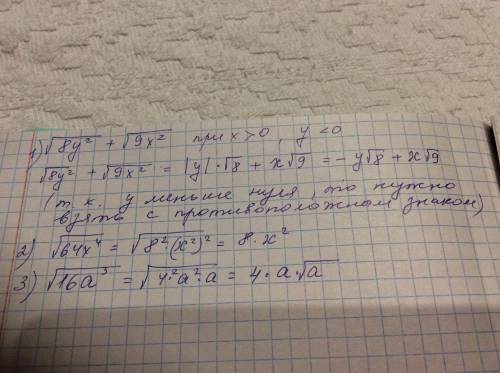 1) √8y² + √9x² при x > 0, y < 0
√8y² + √9x² = |y|·√8 + x√9 = - y√8 + x√9
(т.к. y меньше нуля, то нужно
взять с противоположном знаком)
2) √64x⁴ = √8²·(x²)² = 8·x²
3) √16a³ = √4²·a²·a = 4·a·√a